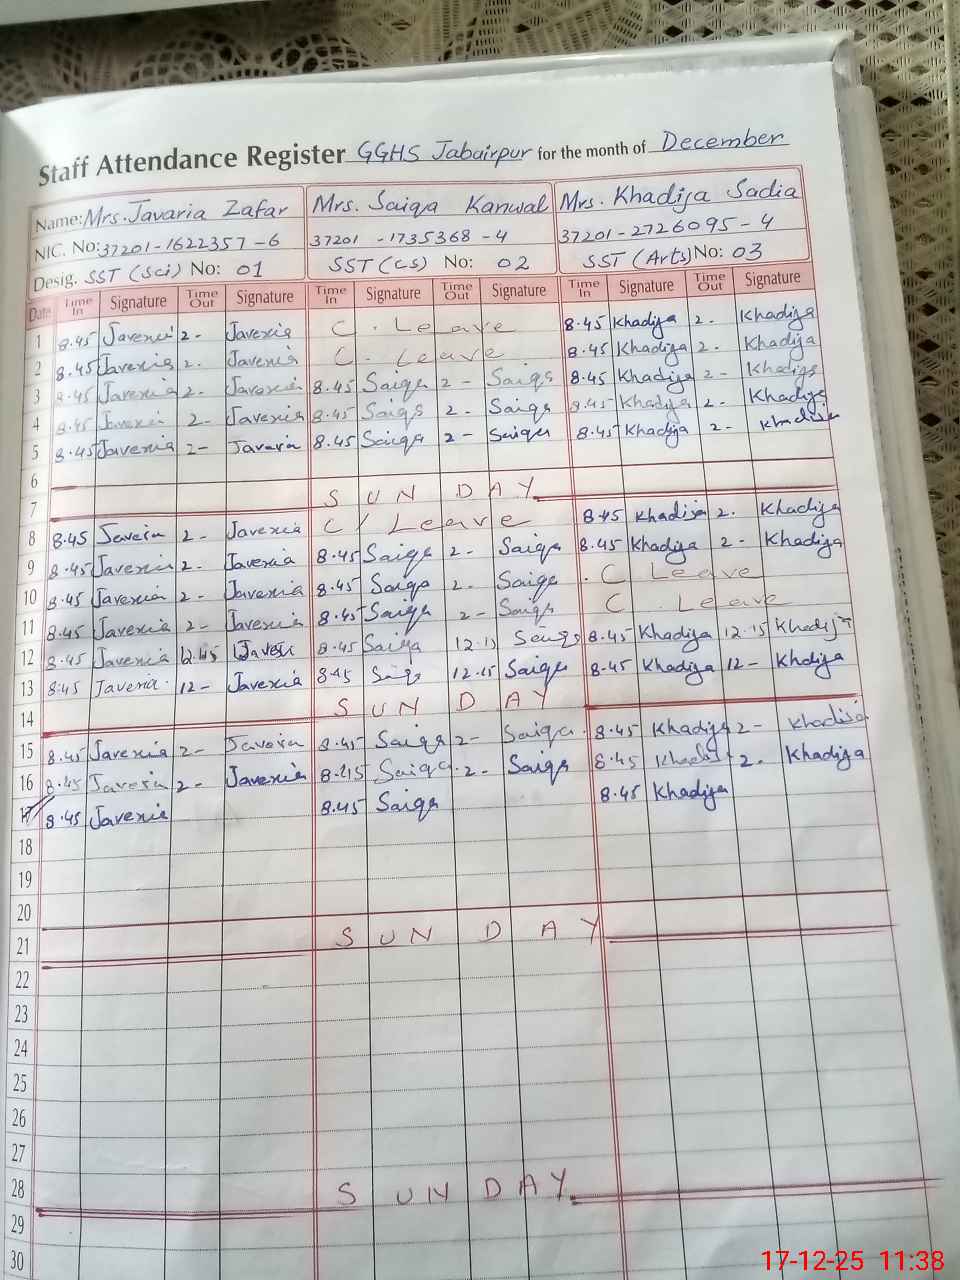 Staff Attendance Register GGHS Jabairpur for the month of December
Name: Mrs. Javaria Zafar Mrs. Saiqa Kanwal Mrs. Khadija Sadia
NIC. No: 37201-1622357-6 37201-1735368-4 37201-2726095-4
Desig. SST (Sci) No: 01 SST (CS) No: 02 SST (Arts) No: 03
Date Time In Signature Time Out Signature Time In Signature Time Out Signature Time In Signature Time Out Signature
1 8.45 Javeria 2- Javeria C. Leave 8.45 Khadija 2. Khadija
2 8.45 Javeria 2. Javeria C. Leave 8.45 Khadija 2. Khadija
3 8.45 Javeria 2- Javeria 8.45 Saiqa 2- Saiqa 8.45 Khadija 2- Khadija
4 8.45 Javeria 2- Javeria 8.45 Saiqa 2- Saiqa 8.45 Khadija 2. Khadija
5 8.45 Javeria 2- Javaria 8.45 Saiqa 2- Saiqa 8.45 Khadija 2- Khadija
6
7 SUNDAY
8 8.45 Javeria 2- Javeria C/Leave 8.45 Khadija 2. Khadija
9 8.45 Javeria 2- Javeria 8.45 Saiqa 2- Saiqa 8.45 Khadija 2- Khadija
10 8.45 Javeria 2- Javeria 8.45 Saiqa 2- Saiqa C Leave
11 8.45 Javeria 2- Javeria 8.45 Saiqa 2- Saiqa C. Leave
12 8.45 Javeria 12.15 Javeria 8.45 Saiqa 12.15 Saiqa 8.45 Khadija 12.15 Khadija
13 8.45 Javeria 12- Javeria 8.45 Saiqa 12.15 Saiqa 8.45 Khadija 12- Khadija
14 SUNDAY
15 8.45 Javeria 2- Javeria 8.45 Saiqa 2- Saiqa 8.45 Khadija 2- Khadija
16 8.45 Javeria 2- Javeria 8.45 Saiqa 2- Saiqa 8.45 Khadija 2. Khadija
17 8.45 Javeria 8.45 Saiqa 8.45 Khadija
18
19
20
21 SUNDAY
22
23
24
25
26
27
28 SUNDAY
29
30
17-12-25 11:38